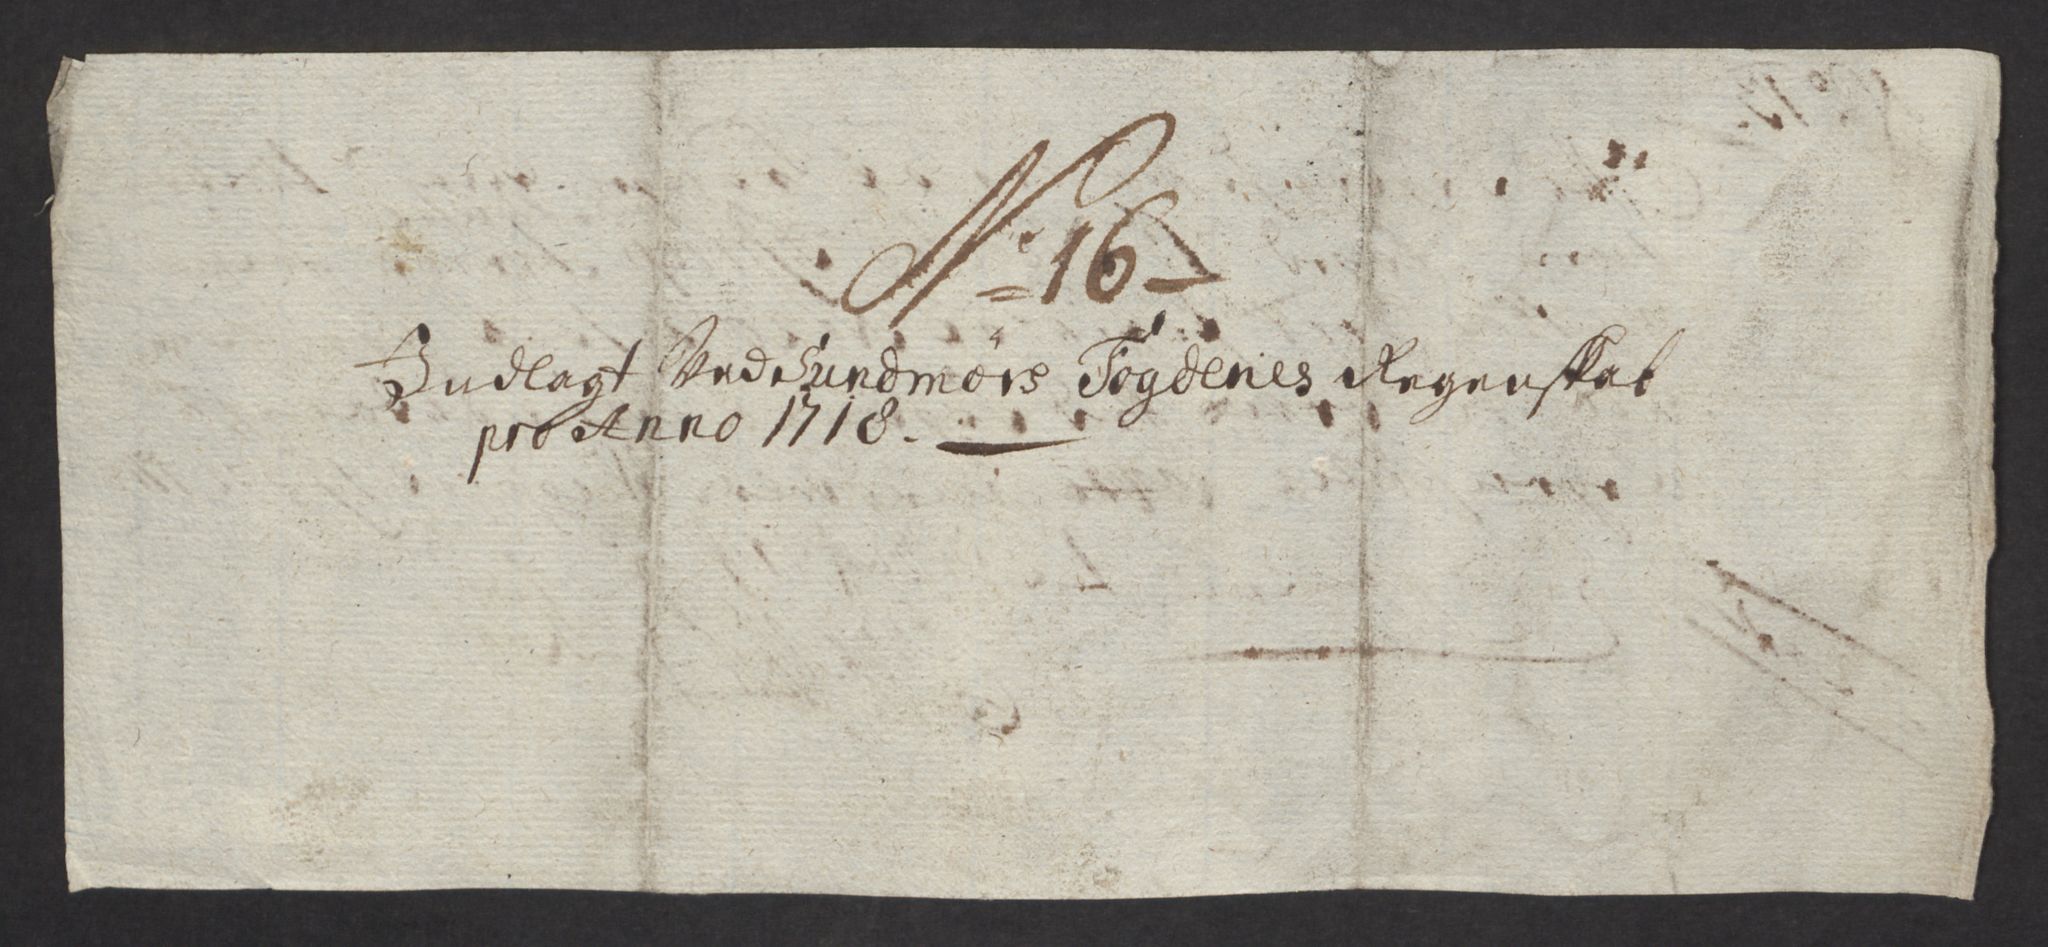 No 16
Indlagt Ved Sundmørs Fogderies Regenskab
pro Anno 1718.